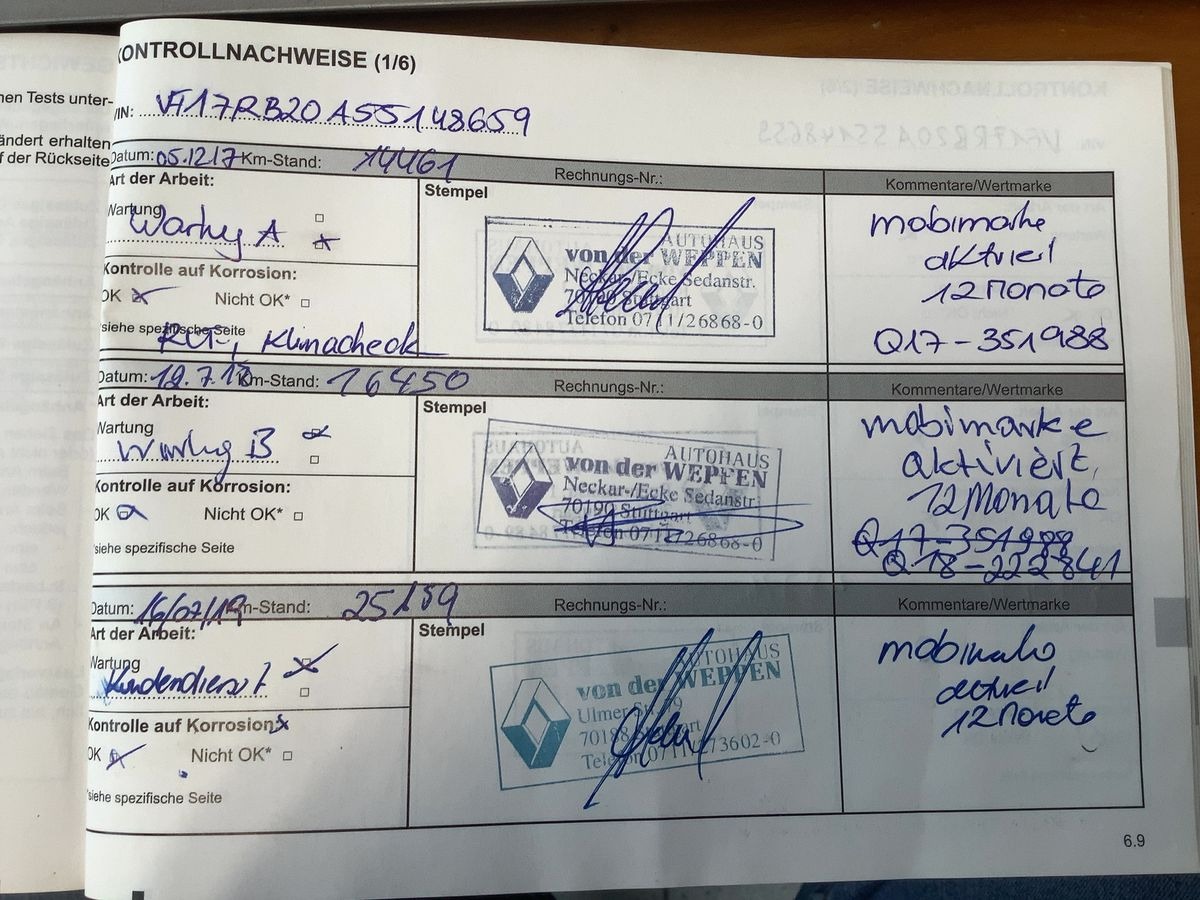 nen Tests unter-
ändert erhalten
f der Rückseite
KONTROLLNACHWEISE (1/6)
VIN: VF17RB20A55148659
Datum: 05.12.17 Km-Stand: 14461 Rechnungs-Nr.: Kommentare/Wertmarke
Art der Arbeit:
Stempel
Wartung
Wartung A
Kontrolle auf Korrosion:
OK Nicht OK*
*siehe spezifische Seite
Klimacheck
AUTOHAUS
von der WEPPEN
Neckar-/Ecke Sedanstr.
70190 Stuttgart
Telefon 0711/26868-0
mobimarke
aktviel
12 Monate
Q17-351988
Datum: 12.7.18 Km-Stand: 16450 Rechnungs-Nr.: Kommentare/Wertmarke
Art der Arbeit:
Stempel
Wartung
Wartung B
Kontrolle auf Korrosion:
OK Nicht OK*
*siehe spezifische Seite
AUTOHAUS
von der WEPPEN
Neckar-/Ecke Sedanstr.
70190 Stuttgart
Telefon 0711/26868-0
mobimarke
aktiviert,
12 Monate
Q17-351988
Q18-222841
Datum: 16/07/19 Km-Stand: 25159 Rechnungs-Nr.: Kommentare/Wertmarke
Art der Arbeit:
Stempel
Wartung
Kundendienst
Kontrolle auf Korrosion:
OK Nicht OK*
*siehe spezifische Seite
AUTOHAUS
von der WEPPEN
Ulmer
70188 Stuttgart
Telefon
12 Monate
6.9